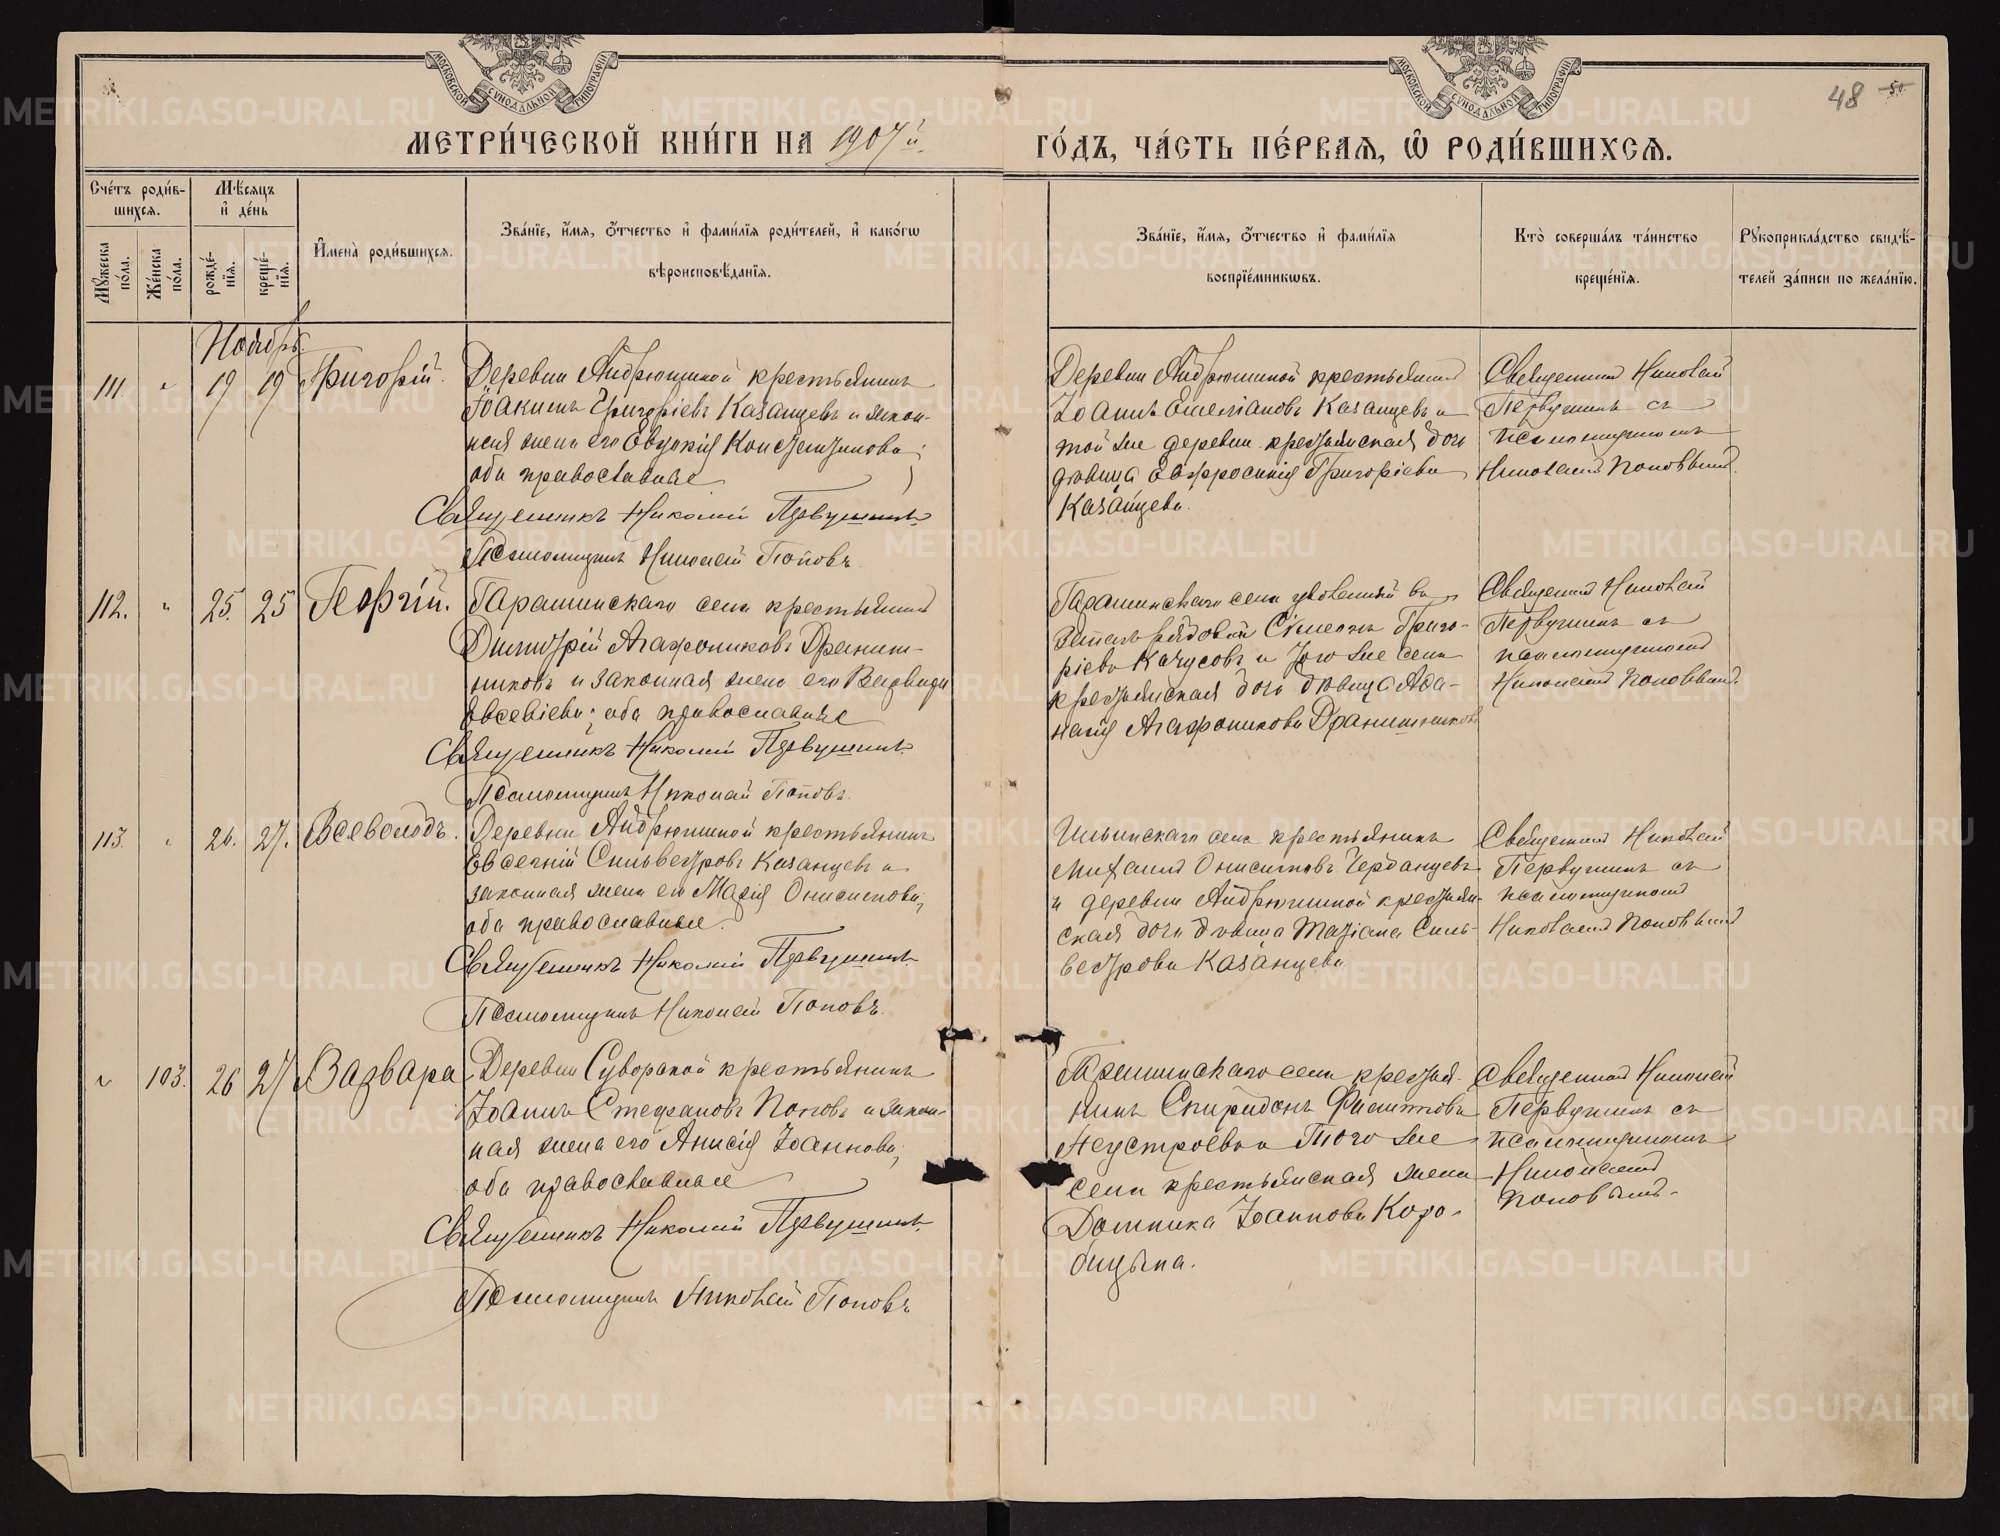 МОСКОВСКОЙ СѴНОДАЛЬНОЙ ТИПОГРАФІИ
МОСКОВСКОЙ СѴНОДАЛЬНОЙ ТИПОГРАФІИ
48
МЕТРИ́ЧЕСКОЙ КНИ́ГИ НА 1907й ГО́ДЪ, ЧА́СТЬ ПЕ́РВАЯ, Ѡ РОДИ́ВШИХСЯ.
Сче́тъ роди́в-
шихся.
Мꙋжеска по́ла.
Же́нска по́ла.
Мѣ́сяцъ и де́нь
рожде́-
нїя.
креще́-
нїя.
Имена̀ роди́вшихся.
Зва́нїе, и́мя, ѻ́тчество и фами́лїя роди́телей, и како́гѡ
вѣроисповѣ́данїя.
Зва́нїе, и́мя, ѻ́тчество и фами́лїя
воспрїе́мникѡвъ.
Кто̀ соверша́лъ та́инство
креще́нїя.
Рꙋкоприкла́дство свидѣ́-
телей за́писи по жела́нїю.
Ноябрь.
111 " 19 19 Григорій.
Деревни Андрюшиной крестьянинъ
Іоакимъ Григоріевъ Казанцевъ и закон-
ная жена его Евдокія Константинова;
оба православные
Священникъ Николай Первушинъ
Псаломщикъ Николай Поповъ
Деревни Андрюшиной крестьянинъ
Іоаннъ Емеліановъ Казанцевъ и
той же деревни крестьянская дочь
дѣвица Евфросинія Григоріева
Казанцева.
Священникъ Николай
Первушинъ съ
псаломщикомъ
Николаемъ Поповымъ.
112. " 25. 25 Георгій.
Гарашинскаго села крестьянинъ
Димитрій Агафониковъ Дранишников
никовъ и законная жена его
Евсевіева; оба православные
Священникъ Николай Первушинъ
Псаломщикъ Николай Поповъ.
села уволенный въ
рядовой Сімеонъ Григо-
ріевъ Качусовъ и того же села
крестьянская дочь дѣвица Афа-
насія Агафоникова Дранишникова
Священникъ Николай
Первушинъ съ
псаломщикомъ
Николаемъ Поповымъ.
113. " 26. 27. Всеволодъ.
Деревни Андрюшиной крестьянинъ
Евсегній Сильвестровъ Казанцевъ и
законная жена его Марія Онисимова;
оба православные.
Священникъ Николай Первушинъ
Псаломщикъ Николай Поповъ.
Ильинскаго села крестьянинъ
Михаилъ Онисимовъ Черданцевъ
и деревни Андрюшиной крестьян-
ская дочь дѣвица Таціана Силь-
вестрова Казанцева
Священникъ Николай
Первушинъ съ
псаломщикомъ
Николаемъ Поповымъ
" 103. 26 27 Варвара
Деревни Суворской крестьянинъ
Іоаннъ Стефановъ Поповъ и закон-
ная жена его Анисія Іоаннова;
оба православные
Священникъ Николай Первушинъ
Псаломщикъ Николай Поповъ
села крестья-
нинъ Спиридонъ
Неустроевъ и того же
села крестьянская жена
Домника Іоаннова Коро-
бицына.
Священникъ Николай
Первушинъ съ
псаломщикомъ
Николаемъ
Поповымъ.
METRIKI.GASO-URAL.RU